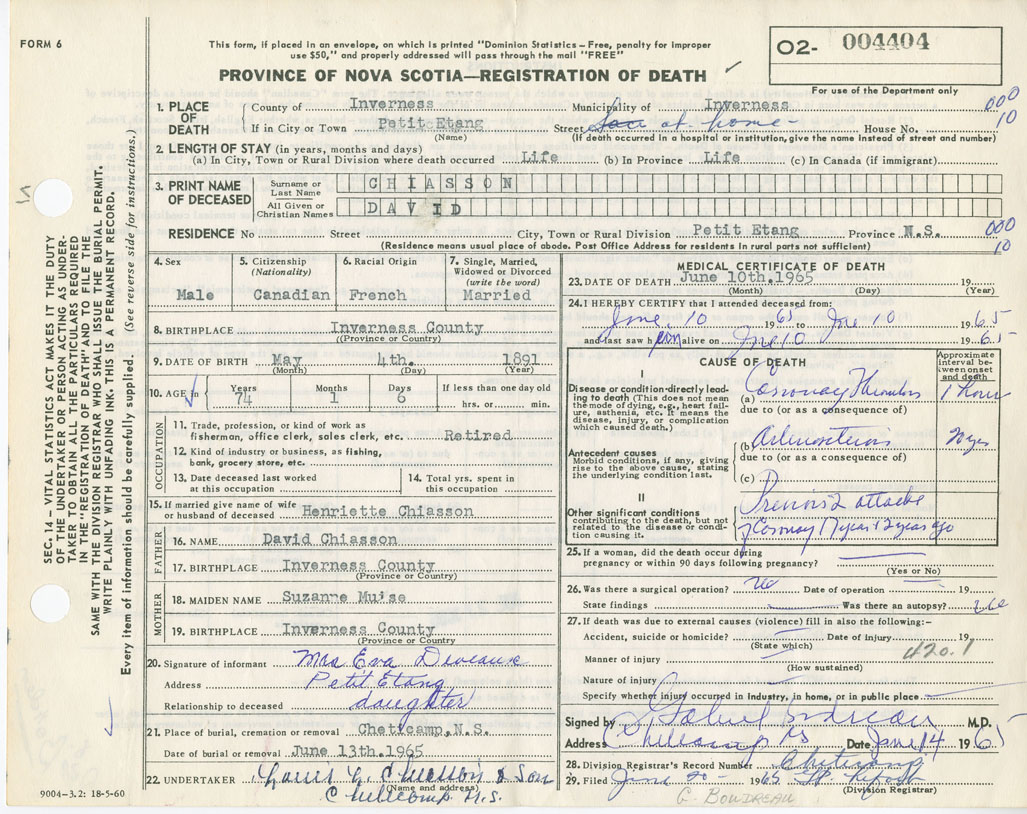 FORM 6
This form, if placed in an envelope, on which is printed "Dominion Statistics – Free, penalty for improper
use $50," and properly addressed will pass through the mail "FREE"
PROVINCE OF NOVA SCOTIA—REGISTRATION OF DEATH
02- 004404
For use of the Department only
1. PLACE OF DEATH
County of Inverness Municipality of Inverness
000
10
If in City or Town Petit Etang Street at home - House No.
(Name) (If death occurred in a hospital or institution, give the name instead of street and number)
2. LENGTH OF STAY (in years, months and days)
(a) In City, Town or Rural Division where death occurred Life (b) In Province Life (c) In Canada (if immigrant)
3. PRINT NAME OF DECEASED
Surname or Last Name CHIASSON
All Given or Christian Names DAVID
RESIDENCE No Street City, Town or Rural Division Petit Etang Province N.S.
000
10
(Residence means usual place of abode. Post Office Address for residents in rural parts not sufficient)
4. Sex Male
5. Citizenship (Nationality) Canadian
6. Racial Origin French
7. Single, Married, Widowed or Divorced (write the word) Married
8. BIRTHPLACE Inverness County
(Province or Country)
9. DATE OF BIRTH May 4th. 1891
(Month) (Day) (Year)
10. AGE in Years 74 Months 1 Days 6 If less than one day old hrs. or min.
OCCUPATION
11. Trade, profession, or kind of work as
fisherman, office clerk, sales clerk, etc. Retired
12. Kind of industry or business, as fishing,
bank, grocery store, etc.
13. Date deceased last worked
at this occupation
14. Total yrs. spent in
this occupation
15. If married give name of wife
or husband of deceased Henriette Chiasson
FATHER
16. NAME David Chiasson
17. BIRTHPLACE Inverness County
(Province or Country)
MOTHER
18. MAIDEN NAME Suzanne Muise
19. BIRTHPLACE Inverness County
(Province or Country)
20. Signature of informant Mrs Eva Deveaux
Address Petit Etang
Relationship to deceased daughter
21. Place of burial, cremation or removal Cheticamp, N.S.
Date of burial or removal June 13th.1965
22. UNDERTAKER & Son
(Name and address)
N.S.
9004-3.2: 18-5-60
MEDICAL CERTIFICATE OF DEATH
23. DATE OF DEATH June 10th.1965 19
(Month) (Day) (Year)
24. I HEREBY CERTIFY that I attended deceased from:
June 10 1965 to June 10 1965
and last saw him alive on June 10 1965
CAUSE OF DEATH
Approximate interval between onset and death
I
Disease or condition directly leading to death (This does not mean
the mode of dying, e.g., heart failure, asthenia, etc. It means the
disease, injury, or complication
which caused death.)
(a) Coronary Thrombosis 1 hour
due to (or as a consequence of)
Antecedent causes
Morbid conditions, if any, giving
rise to the above cause, stating
the underlying condition last.
(b)
due to (or as a consequence of)
(c)
II
Other significant conditions
contributing to the death, but not
related to the disease or condition causing it.
Previous 2 attacks
of Coronary 17 years & 2 years ago
25. If a woman, did the death occur during
pregnancy or within 90 days following pregnancy?
(Yes or No)
26. Was there a surgical operation? no Date of operation 19
State findings Was there an autopsy? no
27. If death was due to external causes (violence) fill in also the following:–
Accident, suicide or homicide? Date of injury 19
(State which)
420.1
Manner of injury
(How sustained)
Nature of injury
Specify whether injury occurred in industry, in home, or in public place
Signed by Gabriel Boudreau M.D.
Address Cheticamp NS Date June 14 1965
28. Division Registrar's Record Number Cheticamp
29. Filed June 20 - 1965
(Division Registrar)
G. BOUDREAU
SEC. 14 – VITAL STATISTICS ACT MAKES IT THE DUTY
OF THE UNDERTAKER OR PERSON ACTING AS UNDER-
TAKER TO OBTAIN ALL THE PARTICULARS REQUIRED
IN THE "REGISTRATION OF DEATH" AND TO FILE THE
SAME WITH THE DIVISION REGISTRAR WHO SHALL ISSUE THE BURIAL PERMIT.
WRITE PLAINLY WITH UNFADING INK–THIS IS A PERMANENT RECORD.
Every item of information should be carefully supplied. (See reverse side for instructions.)